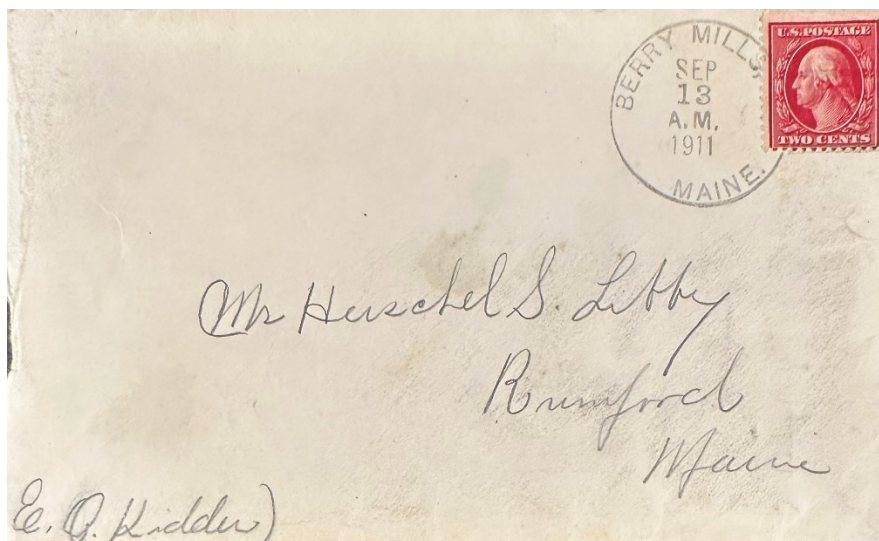 BERRY MILLS,
SEP
13
A.M.
1911
MAINE.
U.S. POSTAGE
TWO CENTS
Mr Herschel S. Libby
Rumford
Maine
E. Q. Kidder)